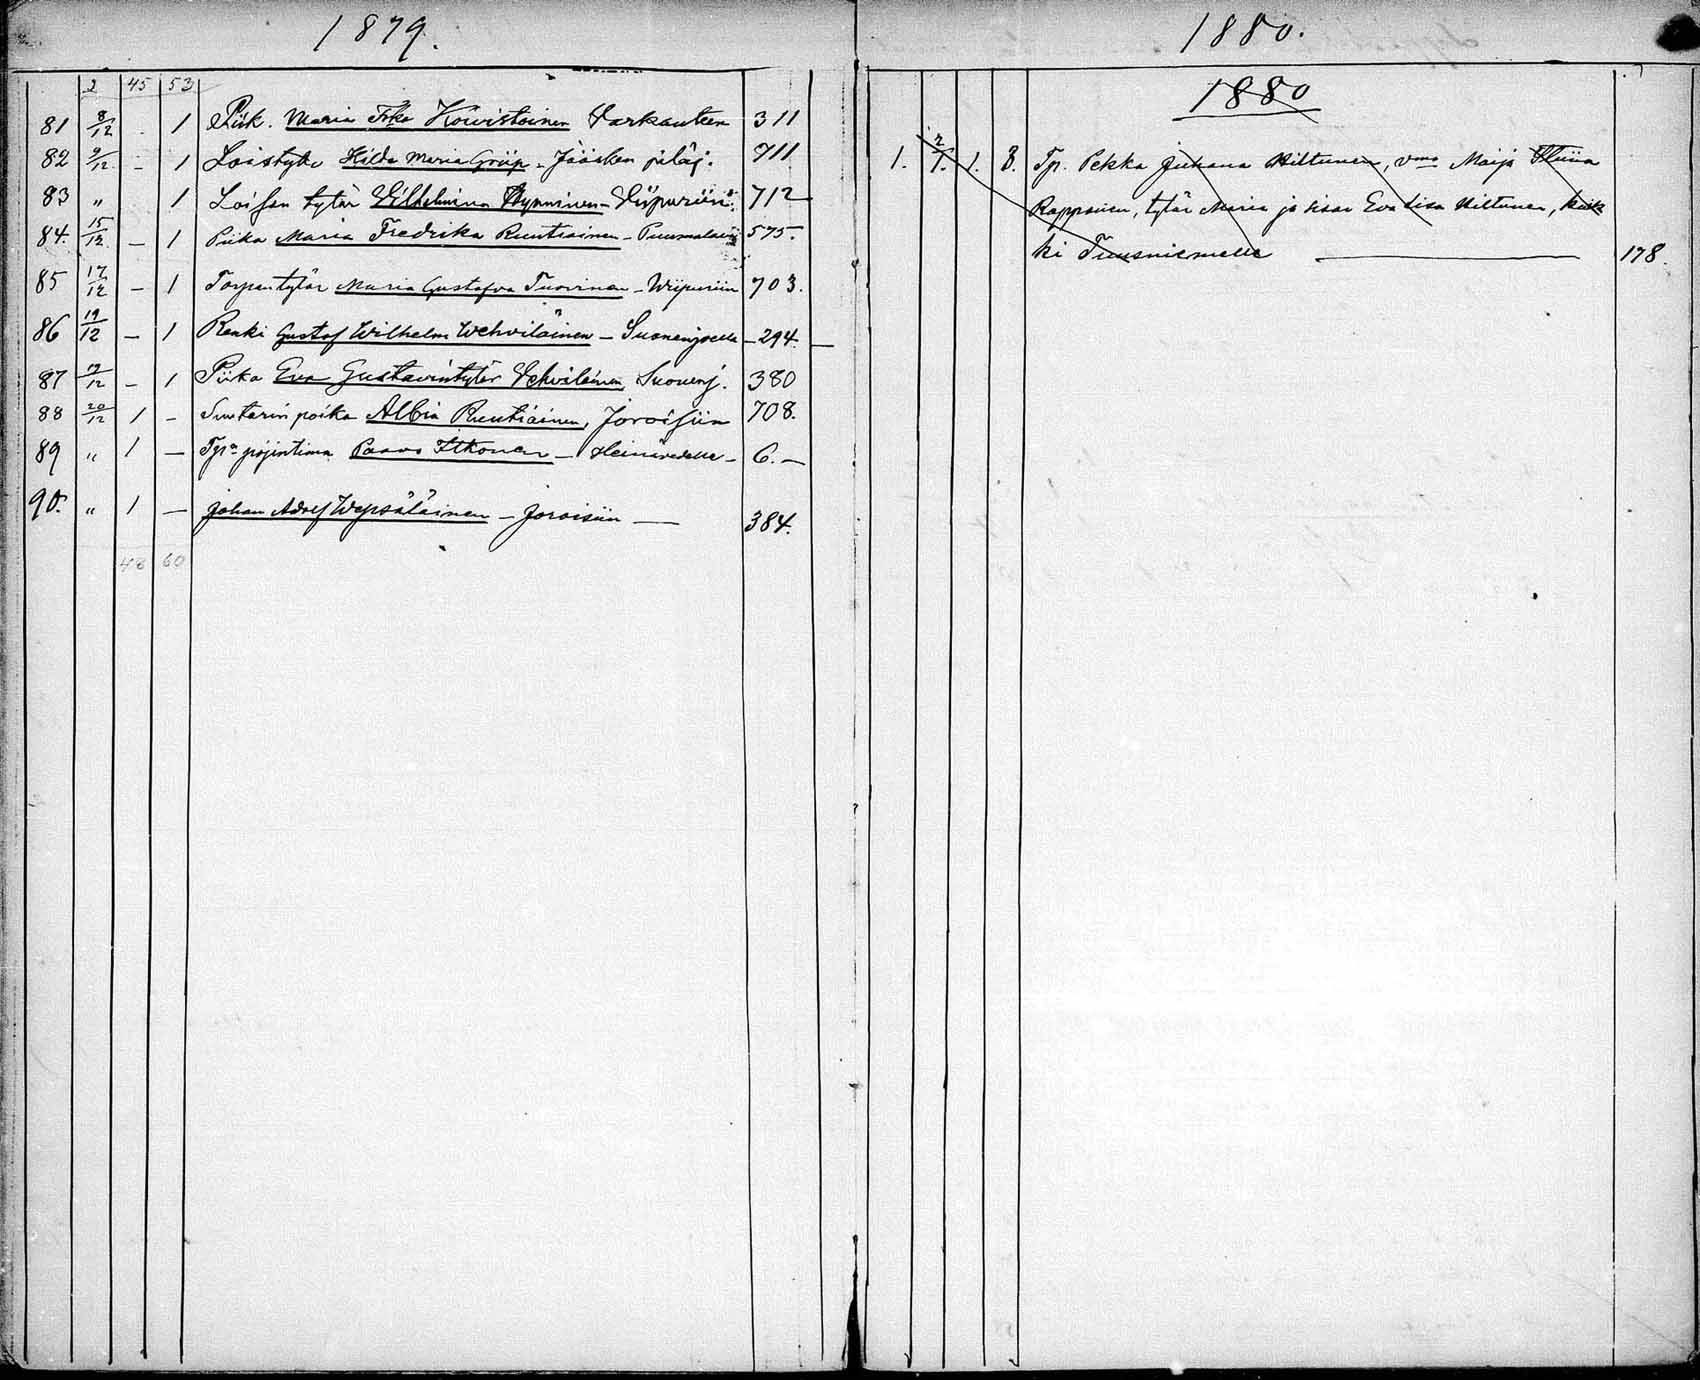 1879.
2 45 53
81 8/12 - 1 Piik. Maria Frka Kowistoinen Varkauteen 311
82 9/12 - 1 Loistytt. Hilda Maria Griip - Jääsken pitäj. 711
83 " 1 Loisen tytär Vilhelmina Hynninen - Viipuriin 712
84. 15/12 - 1 Piika Maria Fredrika Ruutiainen - Puumalaan 575.
85 17/12 - 1 Torpantytär Maria Gustafva Tuovinen - Wiipuriin 703.
86 19/12 - 1 Renki Gustaf Wilhelm Wehviläinen - Suonenjoella - 294.
87 19/12 - 1 Piika Eva Gustavintytär Vehviläinen Suonenj. 380
88 20/12 1 - Suutarin poika Albin Ruutiainen, Joroisiin 708.
89 " 1 - Paavo Itkonen - Heinävedelle - 6. -
90. " 1 - Johan Adolf Wepsäläinen - Joroisiin - 384.
48 60
1880.
1880
1. 2/1. 1. 3. Tp. Pekka Juhana Hiltunen, vmo Maija Stiina
Rapponen, tytär Maria ja sisar Eva Lisa Hiltunen, kaik
ki Tuusniemelle 178.